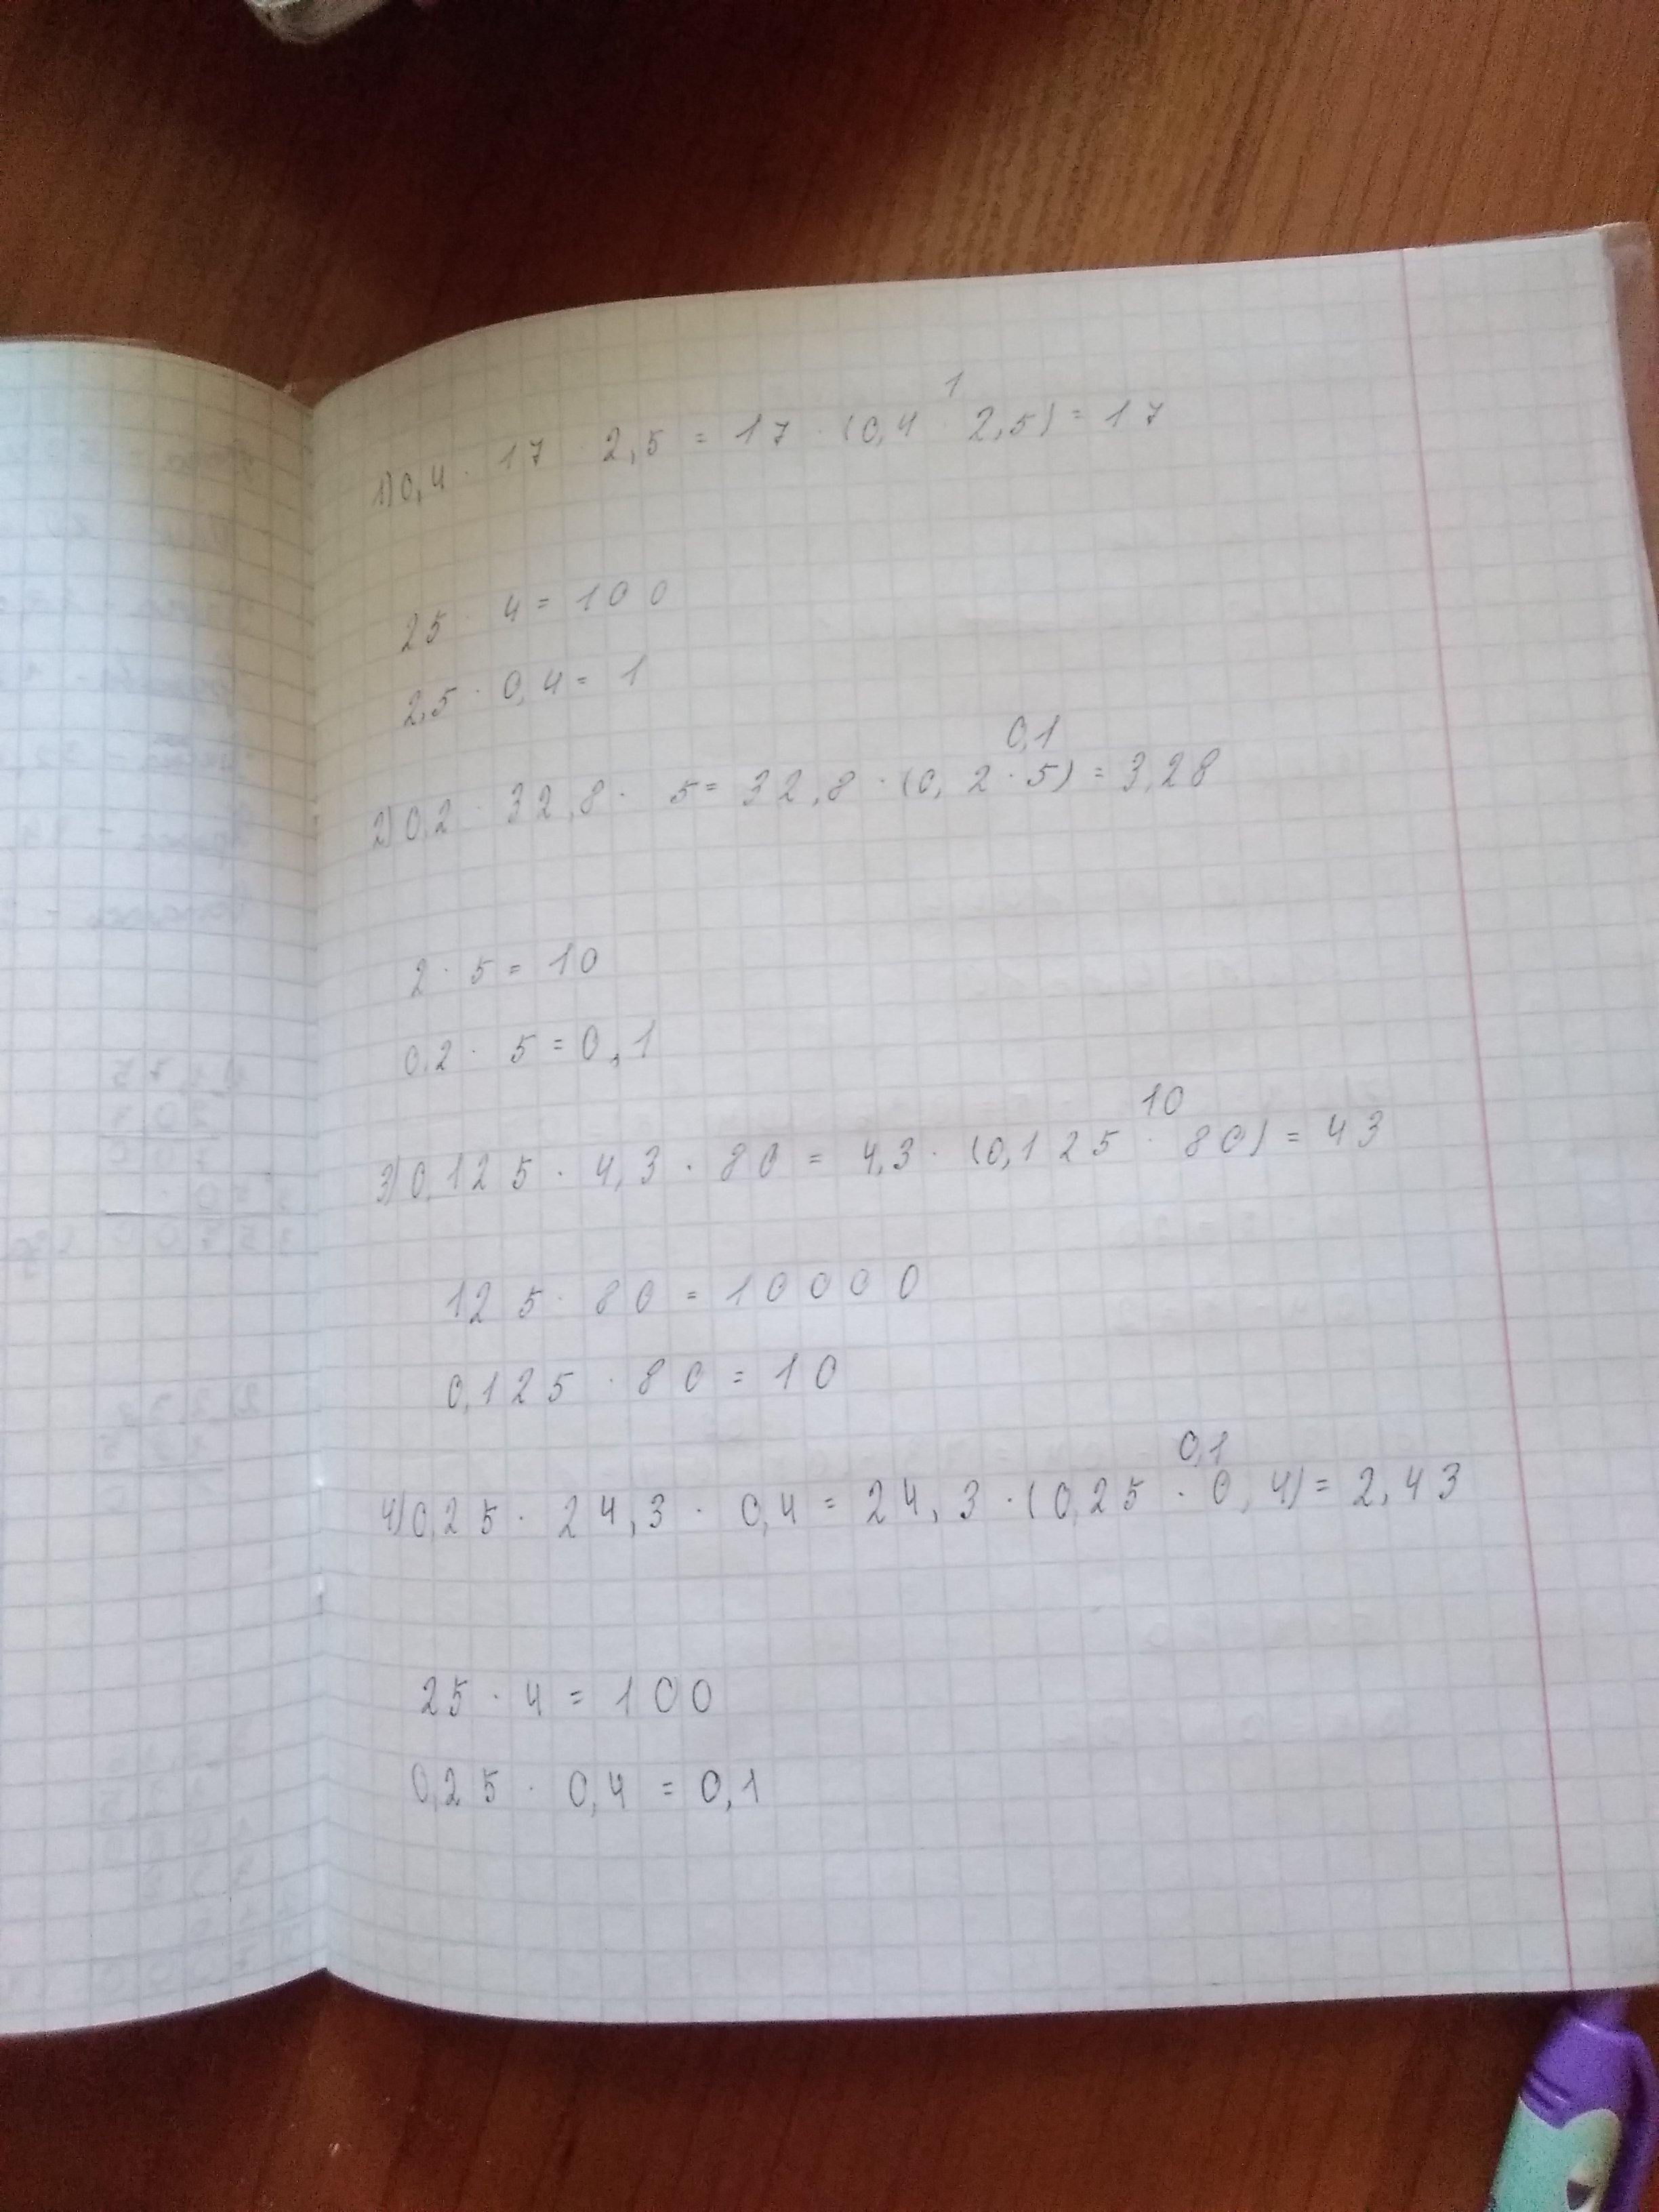 1
1) 0,4 · 17 · 2,5 = 17 · (0,4 · 2,5) = 17
25 · 4 = 100
2,5 · 0,4 = 1
0,1
2) 0,2 · 32,8 · 5 = 32,8 · (0,2 · 5) = 3,28
2 · 5 = 10
0,2 · 5 = 0,1
10
3) 0,125 · 4,3 · 80 = 4,3 · (0,125 · 80) = 43
125 · 80 = 10000
0,125 · 80 = 10
0,1
4) 0,25 · 24,3 · 0,4 = 24,3 · (0,25 · 0,4) = 2,43
25 · 4 = 100
0,25 · 0,4 = 0,1